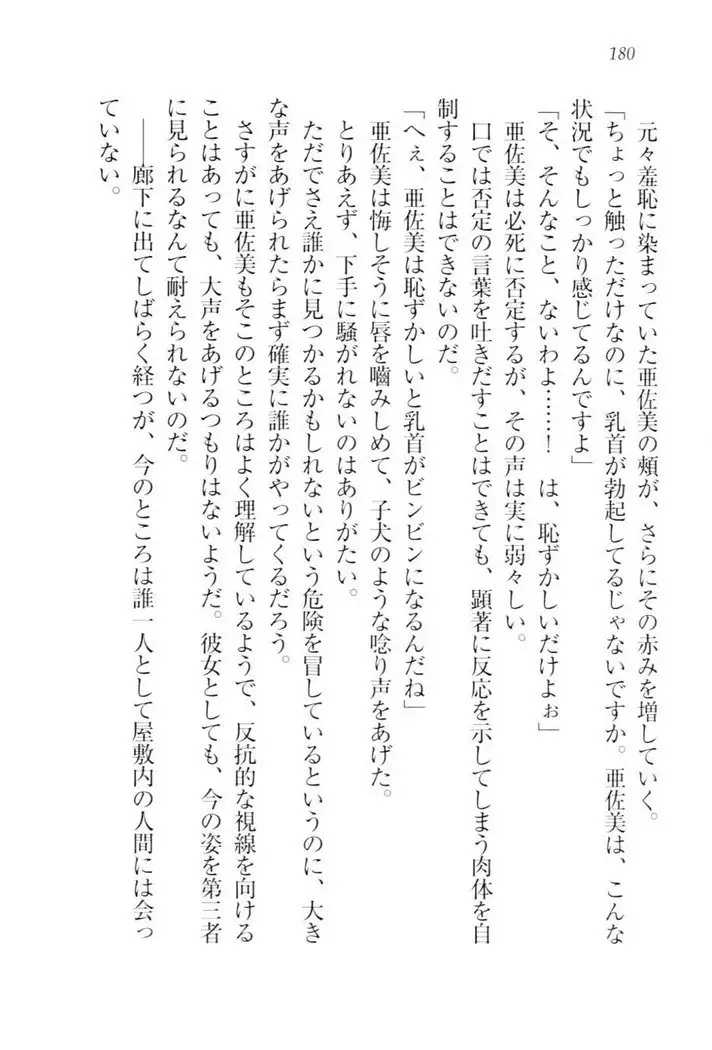 180
元々羞恥に染まっていた亜佐美の頬が、さらにその赤みを増していく。
「ちょっと触っただけなのに、乳首が勃起してるじゃないですか。亜佐美は、こんな
状況でもしっかり感じてるんですよ」
「そ、そんなこと、ないわよ……！　は、恥ずかしいだけよぉ」
亜佐美は必死に否定するが、その声は実に弱々しい。
口では否定の言葉を吐きだすことはできても、顕著に反応を示してしまう肉体を自
制することはできないのだ。
「へぇ、亜佐美は恥ずかしいと乳首がビンビンになるんだね」
亜佐美は悔しそうに唇を嚙みしめて、子犬のような唸り声をあげた。
とりあえず、下手に騒がれないのはありがたい。
ただでさえ誰かに見つかるかもしれないという危険を冒しているというのに、大き
な声をあげられたらまず確実に誰かがやってくるだろう。
さすがに亜佐美もそこのところはよく理解しているようで、反抗的な視線を向ける
ことはあっても、大声をあげるつもりはないようだ。彼女としても、今の姿を第三者
に見られるなんて耐えられないのだ。
――廊下に出てしばらく経つが、今のところは誰一人として屋敷内の人間には会っ
ていない。